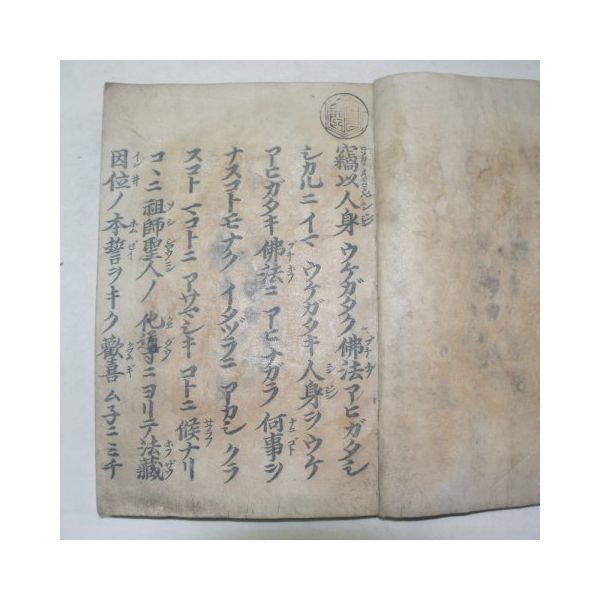 竊以人身ウケガタク佛法アヒガタシ
シカルニイマウケガタキ人身ヲウケ
アヒガタキ佛法ニアヒナガラ何事ヲ
ナスコトモナクイタヅラニアカシクラ
スコトマコトニアサマシキコトニ候ナリ
コヽニ祖師聖人ノ化導ニヨリテ法藏
因位ノ本誓ヲキク歡喜ムネニミチ